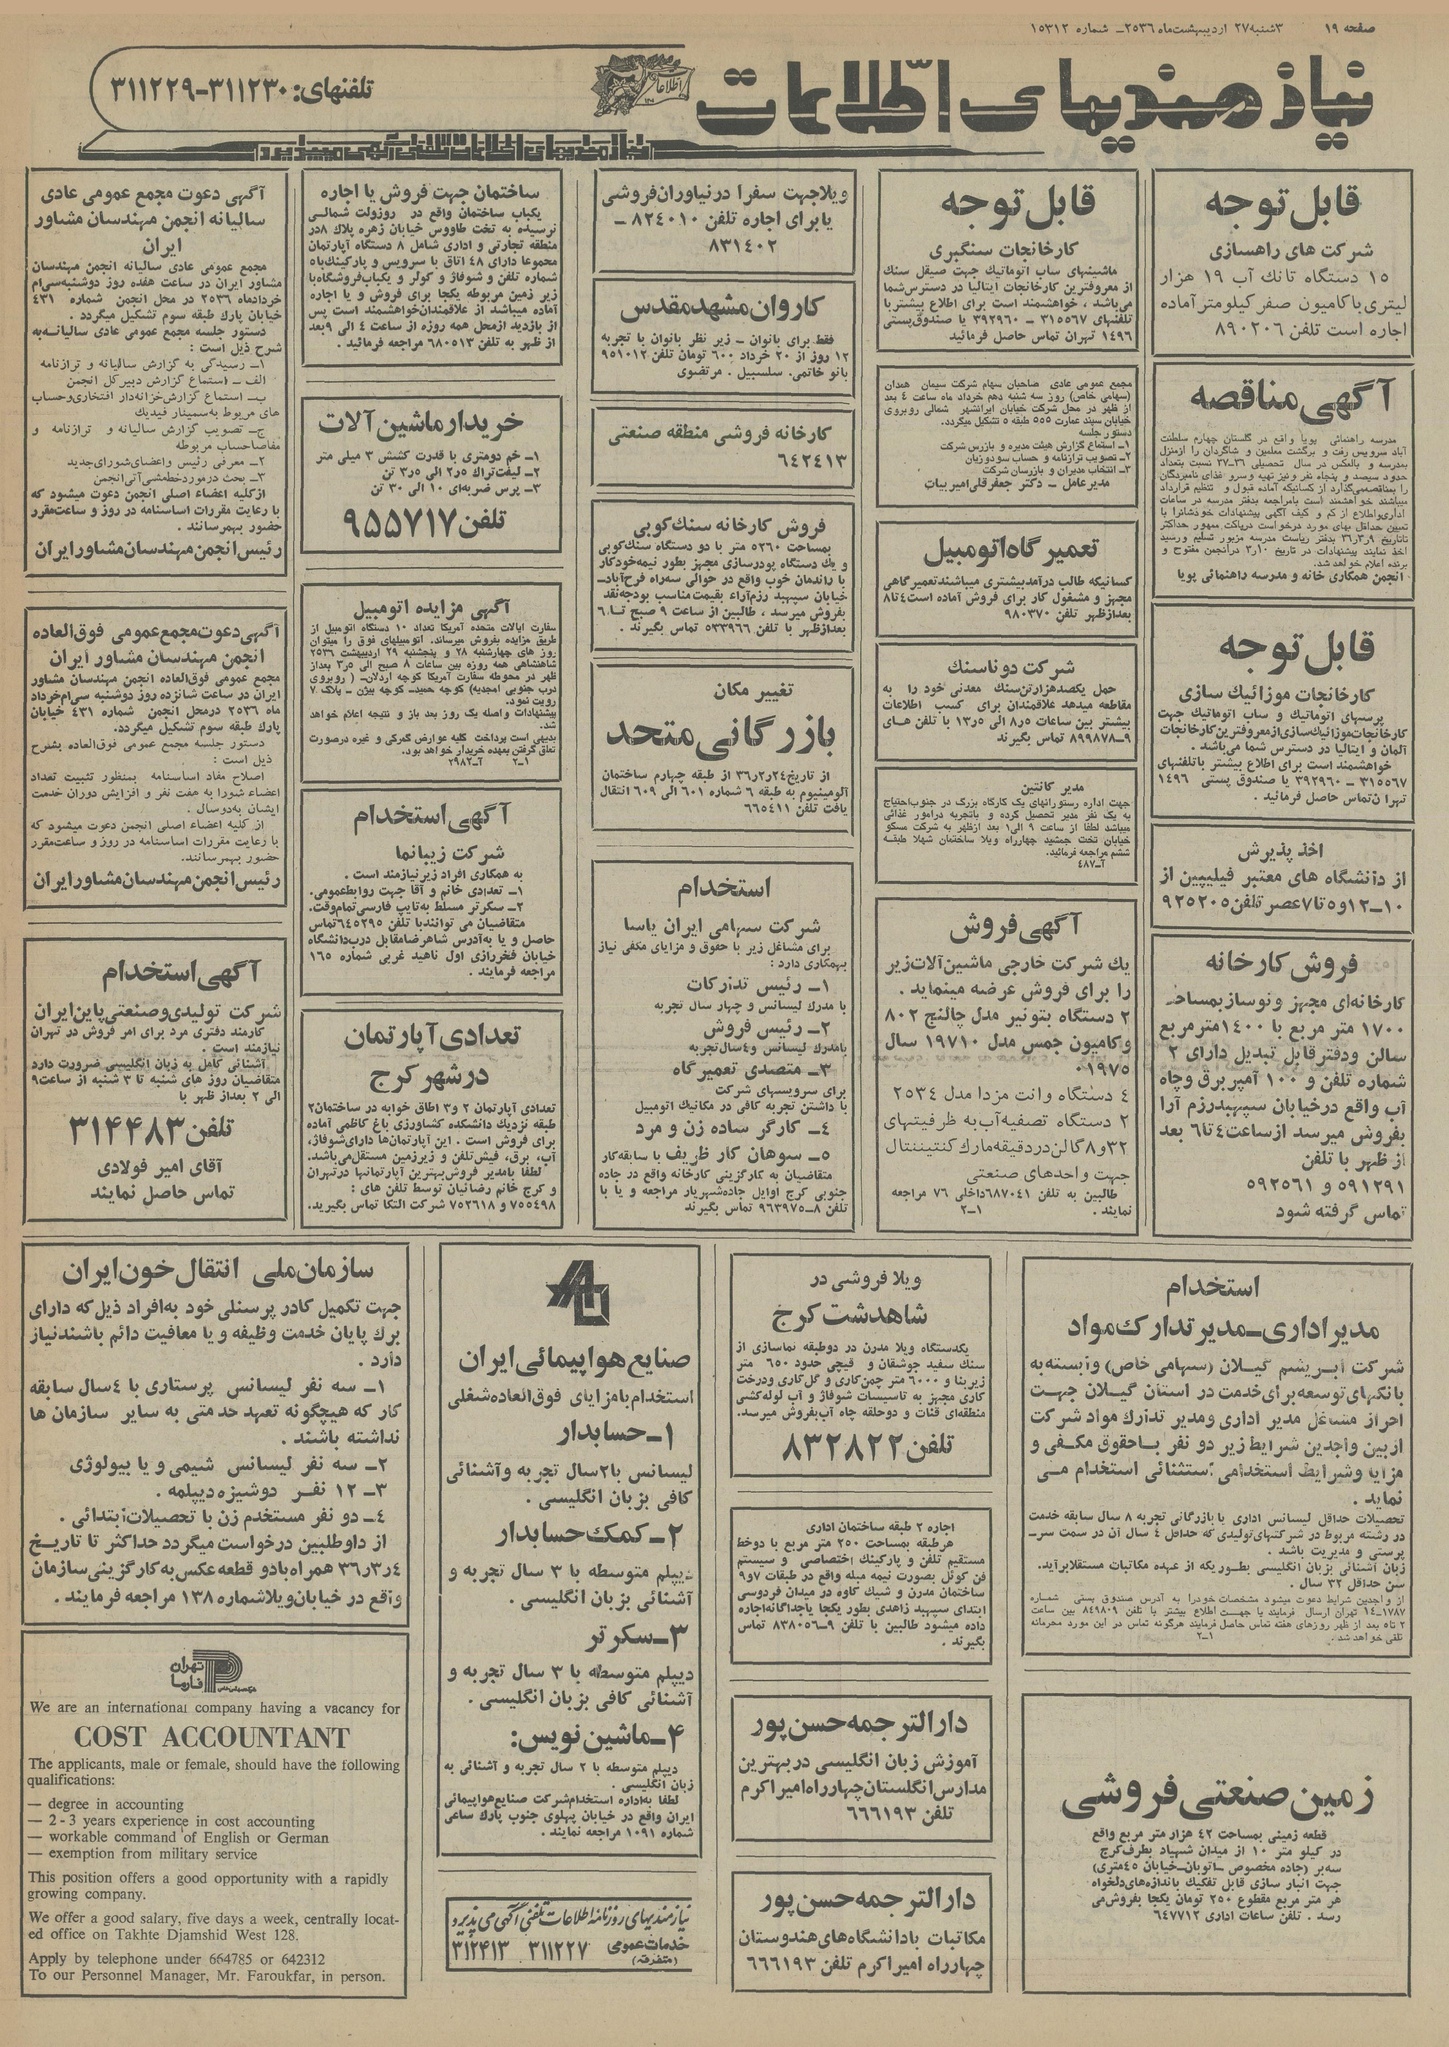 صفحه ۱۹
۳شنبه ۲۷ اردیبهشت ماه ۲۵۳۶ـ شماره ۱۵۳۱۲
نیازمندیهای اطلاعات
تلفنهای: ۳۱۱۲۳۰-۳۱۱۲۲۹
نیازمندیهای اطلاعات تلفنی آگهی میپذیرد
قابل توجه
شرکت های راهسازی
۱۵ دستگاه تانک آب ۱۹ هزار
لیتری با کامیون صفر کیلومتر آماده
اجاره است تلفن ۸۹۰۲۰۶
آگهی مناقصه
مدرسه راهنمائی پویا واقع در گلستان چهارم سلطنت
آباد سرویس رفت و برگشت معلمین و شاگردان را ازمنزل
بمدرسه و بالعکس در سال تحصیلی ۳۶ـ۳۷ نسبت بتعداد
حدود سیصد و پنجاه نفر ونیز تهیه وسرو غذای نامبردگان
را بمناقصه‌می‌گذارد از کسانیکه آماده قبول و تنظیم قرارداد
میباشند خواهشمند است بامراجعه بدفتر مدرسه در ساعات
اداری‌واطلاع از کم و کیف آگهی پیشنهادات خودشانرا با
تعیین حداقل بهای مورد درخواست درپاکت ممهور حداکثر
تاتاریخ ۳۶ر۳ر۹ بدفتر ریاست مدرسه مزبور تسلیم و رسید
اخذ نمایند پیشنهادات در تاریخ ۳ر۱۰ درانجمن مفتوح و
برنده اعلام خواهد شد.
انجمن همکاری خانه و مدرسه راهنمائی پویا
قابل توجه
کارخانجات موزائیک سازی
پرسهای اتوماتیک و ساب اتوماتیک جهت
کارخانجات‌موزائیک‌سازی‌ازمعروفترین‌کارخانجات
آلمان و ایتالیا در دسترس شما می‌باشد.
خواهشمند است برای اطلاع بیشتر با تلفنهای
۳۱۵۵۶۷ ـ ۳۹۲۹۶۰ یا صندوق پستی ۱۴۹۶
تهران تماس حاصل فرمائید.
اخذ پذیرش
از دانشگاه های معتبر فیلیپین از
۱۰ـ۱۲و۵تا۷عصر تلفن ۹۲۵۲۰۵
فروش کارخانه
کارخانه‌ای مجهز و نوساز بمساحت
۱۷۰۰ متر مربع با ۱۴۰۰مترمربع
سالن ودفتر قابل تبدیل دارای ۲
شماره تلفن و ۱۰۰ آمپر برق و چاه
آب واقع در خیابان سپهبد رزم آرا
بفروش میرسد ازساعت ۴ تا ۶ بعد
از ظهر با تلفن
۵۹۱۲۹۱ و ۵۹۲۵۶۱
تماس گرفته شود
قابل توجه
کارخانجات سنگبری
ماشینهای ساب اتوماتیک جهت صیقل سنگ
از معروفترین کارخانجات ایتالیا در دسترس شما
می‌باشد، خواهشمند است برای اطلاع بیشتر با
تلفنهای ۳۱۵۵۶۷ ـ ۳۹۲۹۶۰ یا صندوق‌پستی
۱۴۹۶ تهران تماس حاصل فرمائید
مجمع عمومی عادی صاحبان سهام شرکت سیمان همدان
(سهامی خاص) روز سه شنبه دهم خرداد ماه ساعت ۴ بعد
از ظهر در محل شرکت خیابان ایرانشهر شمالی روبروی
خیابان سپند عمارت ۵۵۵ طبقه ۵ تشکیل میگردد.
دستور جلسه
۱ـ استماع گزارش هیئت مدیره و بازرس شرکت
۲ـ تصویب ترازنامه و حساب سود و زیان
۳ـ انتخاب مدیران و بازرسان شرکت
مدیرعامل - دکتر جعفرقلی امیربیات
تعمیرگاه اتومبیل
کسانیکه طالب درآمد بیشتری میباشند تعمیرگاهی
مجهز و مشغول کار برای فروش آماده است ۴ تا ۸
بعدازظهر تلفن ۹۸۰۳۷۰
شرکت دوناسنگ
حمل یکصدهزارتن‌سنگ معدنی خود را به
مقاطعه میدهد علاقمندان برای کسب اطلاعات
بیشتر بین ساعات ۸ر۵ الی ۱۳ر۵ با تلفن های
۹ـ۸۹۹۸۷۸ تماس بگیرند
مدیر کانتین
جهت اداره رستورانهای یک کارگاه بزرگ در جنوب احتیاج
به یک نفر مدیر تحصیل کرده و باتجربه درامور غذائی
میباشد لطفا از ساعت ۹ الی ۱ بعد ازظهر به شرکت مسکو
خیابان تخت جمشید چهارراه ویلا ساختمان شهلا طبقه
ششم مراجعه فرمائید.
آـ۴۸۷
آگهی فروش
یک شرکت خارجی ماشین آلات زیر
را برای فروش عرضه مینماید.
۲ دستگاه بتونیر مدل چالنج ۸۰۲
و کامیون جمس مدل ۱۹۷۱۰ سال
۰۱۹۷۵
۴ دستگاه وانت مزدا مدل ۲۵۳۴
۲ دستگاه تصفیه آب به ظرفیتهای
۳۲و۸ گالن در دقیقه مارک کنتیننتال
جهت واحدهای صنعتی
طالبین به تلفن ۶۸۷۰۴۱ داخلی ۷۶ مراجعه
نمایند. ۱ـ۲
ویلاجهت سفرا در نیاوران فروشی
یا برای اجاره تلفن ۸۲۴۰۱۰ ـ
۸۳۱۴۰۲
کاروان مشهد مقدس
فقط برای بانوان - زیر نظر بانوان با تجربه
۱۲ روز از ۲۰ خرداد ۶۰۰ تومان تلفن ۹۵۱۰۱۲
بانو خاتمی. سلسبیل. مرتضوی
کارخانه فروشی منطقه صنعتی
۶۴۲۴۱۳
فروش کارخانه سنگ‌کوبی
بمساحت ۵۲۶۰ متر با دو دستگاه سنگ‌کوبی
و یک دستگاه پودرسازی مجهز بطور نیمه‌خودکار
با راندمان خوب واقع در حوالی سه‌راه فرح‌آبادـ
خیابان سپهبد رزم‌آراء بقیمت مناسب بودجه‌نقد
بفروش میرسد، طالبین از ساعت ۹ صبح تا ۶
بعدازظهر با تلفن ۵۳۳۹۶۶ تماس بگیرند.
تغییر مکان
بازرگانی متحد
از تاریخ ۳۶ر۲ر۲۴ از طبقه چهارم ساختمان
آلومینیوم به طبقه ۶ شماره ۶۰۱ الی ۶۰۹ انتقال
یافت تلفن ۶۶۵۴۱۱
استخدام
شرکت سهامی ایران یاسا
برای مشاغل زیر با حقوق و مزایای مکفی نیاز
بهمکاری دارد:
۱ـ رئیس تدارکات
با مدرک لیسانس و چهار سال تجربه
۲ـ رئیس فروش
بامدرک لیسانس و ۴ سال تجربه
۳ـ متصدی تعمیرگاه
برای سرویسهای شرکت
با داشتن تجربه کافی در مکانیک اتومبیل
۴ـ کارگر ساده زن و مرد
۵ـ سوهان کار ظریف با سابقه‌کار
متقاضیان به کارگزینی کارخانه واقع در جاده
جنوبی کرج اوایل جاده‌شهریار مراجعه و یا با
تلفن ۸ـ۹۶۳۹۷۵ تماس بگیرند
ساختمان جهت فروش یا اجاره
یکباب ساختمان واقع در روزولت شمالی
نرسیده به تخت طاووس خیابان زهره پلاک ۸در
منطقه تجارتی و اداری شامل ۸ دستگاه آپارتمان
مجموعا دارای ۴۸ اتاق با سرویس و پارکینگ‌با۵
شماره تلفن و شوفاژ و کولر و یکباب‌فروشگاه‌با
زیر زمین مربوطه یکجا برای فروش و یا اجاره
آماده میباشد از علاقمندان‌خواهشمند است پس
از بازدید ازمحل همه روزه از ساعت ۴ الی ۹بعد
از ظهر به تلفن ۶۸۰۵۱۳ مراجعه فرمائید.
خریدار ماشین آلات
۱ـ خم دومتری با قدرت کشش ۳ میلی متر
۲ـ لیفت‌تراک ۲ر۵ الی ۳ر۵ تن
۳ـ پرس ضربه‌ای ۱۰ الی ۳۰ تن
تلفن ۹۵۵۷۱۷
آگهی مزایده اتومبیل
سفارت ایالات متحده آمریکا تعداد ۱۰ دستگاه اتومبیل از
طریق مزایده بفروش میرساند. اتومبیلهای فوق را میتوان
روز های چهارشنبه ۲۸ و پنجشنبه ۲۹ اردیبهشت ۲۵۳۶
شاهنشاهی همه روزه بین ساعات ۸ صبح الی ۳ر۵ بعداز
ظهر در محوطه سفارت آمریکا کوچه اردلان- (روبروی
درب جنوبی امجدیه) کوچه حمید- کوچه بیژن - پلاک ۷
رویت نمود.
پیشنهادات واصله یک روز بعد باز و نتیجه اعلام خواهد
شد.
بدیهی است پرداخت کلیه عوارض گمرکی و غیره درصورت
تعلق گرفتن بعهده خریدار خواهد بود.
۱ـ۲ آـ۲۹۸۲
آگهی استخدام
شرکت زیبانما
به همکاری افراد زیر نیازمند است.
۱ـ تعدادی خانم و آقا جهت روابط‌عمومی.
۲ـ سکرتر مسلط به‌تایپ فارسی‌تمام‌وقت.
متقاضیان می توانند با تلفن ۶۴۵۲۹۵ تماس
حاصل و یا به‌آدرس شاهرضامقابل درب‌دانشگاه
خیابان فخررازی اول ناهید غربی شماره ۱۶۵
مراجعه فرمایند.
تعدادی آپارتمان
در شهر کرج
تعدادی آپارتمان ۲ و۳ اطاق خوابه در ساختمان۲
طبقه نزدیک دانشکده کشاورزی باغ کاظمی آماده
برای فروش است. این آپارتمان‌ها دارای‌شوفاژ،
آب، برق، فیش‌تلفن و زیرزمین مستقل‌می‌باشد.
لطفا بامدیر فروش‌بهترین آپارتمانها درتهران
و کرج خانم رضائیان توسط تلفن های:
۷۵۵۴۹۸ و ۷۵۲۶۱۸ شرکت التکا تماس بگیرید.
آگهی دعوت مجمع عمومی عادی
سالیانه انجمن مهندسان مشاور
ایران
مجمع عمومی عادی سالیانه انجمن مهندسان
مشاور ایران در ساعت هفده روز دوشنبه‌سی‌ام
خردادماه ۲۵۳۶ در محل انجمن شماره ۴۳۱
خیابان پارک طبقه سوم تشکیل میگردد.
دستور جلسه مجمع عمومی عادی سالیانه‌به
شرح ذیل است:
۱ـ رسیدگی به گزارش سالیانه و ترازنامه
الف ـ استماع گزارش دبیرکل انجمن
ب- استماع گزارش‌خزانه‌دار افتخاری‌وحساب
های مربوط به‌سمینار فیدیک
ج- تصویب گزارش سالیانه و ترازنامه و
مفاصاحساب مربوطه
۲ـ معرفی رئیس واعضای‌شورای‌جدید
۳ـ بحث درموردخط‌مشی‌آتی‌انجمن
ازکلیه اعضاء اصلی انجمن دعوت میشود که
با رعایت مقررات اساسنامه در روز و ساعت‌مقرر
حضور بهمرسانند.
رئیس انجمن مهندسان مشاور ایران
آگهی دعوت مجمع عمومی فوق‌العاده
انجمن مهندسان مشاور ایران
مجمع عمومی فوق‌العاده انجمن مهندسان مشاور
ایران در ساعت شانزده روز دوشنبه سی‌ام‌خرداد
ماه ۲۵۳۶ درمحل انجمن شماره ۴۳۱ خیابان
پارک طبقه سوم تشکیل میگردد.
دستور جلسه مجمع عمومی فوق‌العاده بشرح
ذیل است:
اصلاح مفاد اساسنامه بمنظور تثبیت تعداد
اعضاء شورا به هفت نفر و افزایش دوران خدمت
ایشان به‌دوسال.
از کلیه اعضاء اصلی انجمن دعوت میشود که
با رعایت مقررات اساسنامه در روز و ساعت‌مقرر
حضور بهمرسانند.
رئیس انجمن مهندسان مشاور ایران
آگهی استخدام
شرکت تولیدی و صنعتی پاین ایران
کارمند دفتری مرد برای امر فروش در تهران
نیازمند است.
آشنائی کامل به زبان انگلیسی ضرورت دارد
متقاضیان روز های شنبه تا ۳ شنبه از ساعت۹
الی ۲ بعداز ظهر با
تلفن ۳۱۴۴۸۳
آقای امیر فولادی
تماس حاصل نمایند
استخدام
مدیر اداری ـ مدیر تدارک مواد
شرکت ابریشم گیلان (سهامی خاص) وابسته به
بانکهای توسعه برای خدمت در استان گیلان جهت
احراز مشاغل مدیر اداری و مدیر تدارک مواد شرکت
ازبین واجدین شرایط زیر دو نفر باحقوق مکفی و
مزایا و شرایط استخدامی استثنائی استخدام می
نماید.
تحصیلات حداقل لیسانس اداری یا بازرگانی تجربه ۸ سال سابقه خدمت
در رشته مربوط در شرکتهای تولیدی که حداقل ۴ سال آن در سمت سر-
پرستی و مدیریت باشد.
زبان آشنائی بزبان انگلیسی بطوریکه از عهده مکاتبات مستقلا برآید.
سن حداقل ۳۲ سال.
از واجدین شرایط دعوت میشود مشخصات خودرا به آدرس صندوق پستی شماره
۱۷۸۷ـ۱۴ تهران ارسال فرمایند یا جهت اطلاع بیشتر با تلفن ۸۴۹۸۰۹ بین ساعت
۲ تا۵ بعد از ظهر روزهای هفته تماس حاصل فرمایند هرگونه تماس در این مورد محرمانه
تلقی خواهد شد. ۱ـ۲
زمین صنعتی فروشی
قطعه زمینی بمساحت ۴۲ هزار متر مربع واقع
در کیلو متر ۱۰ از میدان شهیاد بطرف کرج
سه‌بر (جاده مخصوص -اتوبان-خیابان ۴۵متری)
جهت انبار سازی قابل تفکیک باندازه‌های‌دلخواه
هر متر مربع مقطوع ۲۵۰ تومان یکجا بفروش‌می
رسد. تلفن ساعات اداری ۶۴۷۷۱۲
ویلا فروشی در
شاهدشت کرج
یکدستگاه ویلا مدرن در دوطبقه نماسازی از
سنگ سفید جوشقان و قیچی حدود ۶۵۰ متر
زیربنا و ۶۰۰۰ متر چمن‌کاری و گل‌کاری ودرخت
کاری مجهز به تاسیسات شوفاژ و آب لوله‌کشی
منطقه‌ای قنات و دوحلقه چاه آب‌بفروش میرسد.
تلفن ۸۳۲۸۲۲
اجاره ۲ طبقه ساختمان اداری
هرطبقه بمساحت ۲۵۰ متر مربع با دوخط
مستقیم تلفن و پارکینگ اختصاصی و سیستم
فن کوئل بصورت نیمه مبله واقع در طبقات ۷و۹
ساختمان مدرن و شیک کاوه در میدان فردوسی
ابتدای سپهبد زاهدی بطور یکجا یاجداگانه‌اجاره
داده میشود طالبین با تلفن ۹ـ۸۳۸۰۵۶ تماس
بگیرند.
دارالترجمه حسن پور
آموزش زبان انگلیسی در بهترین
مدارس انگلستان چهارراه امیراکرم
تلفن ۶۶۶۱۹۳
دارالترجمه حسن پور
مکاتبات با دانشگاه‌های هندوستان
چهارراه امیراکرم تلفن ۶۶۶۱۹۳
صنایع هواپیمائی ایران
استخدام بامزایای فوق‌العاده شغلی
۱ـ حسابدار
لیسانس با ۲ سال تجربه و آشنائی
کافی بزبان انگلیسی.
۲ـ کمک حسابدار
دیپلم متوسطه با ۳ سال تجربه و
آشنائی بزبان انگلیسی.
۳ـ سکرتر
دیپلم متوسطه با ۳ سال تجربه و
آشنائی کافی بزبان انگلیسی.
۴ـ ماشین نویس:
دیپلم متوسطه با ۲ سال تجربه و آشنائی به
زبان انگلیسی.
لطفا به‌اداره استخدام شرکت صنایع هواپیمائی
ایران واقع در خیابان پهلوی جنوب پارک ساعی
شماره ۱۰۹۱ مراجعه نمایند.
نیازمندیهای روزنامه اطلاعات تلفنی آگهی می‌پذیرد
خدمات عمومی (متفرقه) ۳۱۱۲۲۷ ۳۱۲۴۱۳
سازمان ملی انتقال خون ایران
جهت تکمیل کادر پرسنلی خود به‌افراد ذیل که دارای
برگ پایان خدمت وظیفه و یا معافیت دائم باشند نیاز
دارد.
۱ـ سه نفر لیسانس پرستاری با ۴ سال سابقه
کار که هیچگونه تعهد خدمتی به سایر سازمان ها
نداشته باشند.
۲ـ سه نفر لیسانس شیمی و یا بیولوژی
۳ـ ۱۲ نفر دوشیزه دیپلمه.
۴ـ دو نفر مستخدم زن با تحصیلات ابتدائی.
از داوطلبین درخواست میگردد حداکثر تا تاریخ
۳۶ر۳ر۴ همراه بادو قطعه عکس به کارگزینی سازمان
واقع در خیابان ویلا شماره ۱۳۸ مراجعه فرمایند.
تهران فارما
We are an international company having a vacancy for
COST ACCOUNTANT
The applicants, male or female, should have the following
qualifications:
— degree in accounting
— 2-3 years experience in cost accounting
— workable command of English or German
— exemption from military service
This position offers a good opportunity with a rapidly
growing company.
We offer a good salary, five days a week, centrally locat-
ed office on Takhte Djamshid West 128.
Apply by telephone under 664785 or 642312
To our Personnel Manager, Mr. Faroukfar, in person.